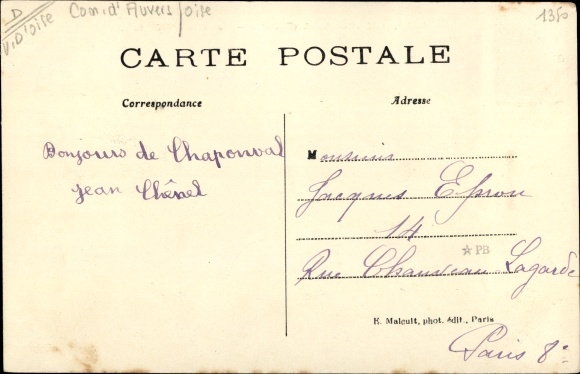 D
V.D'Oise
Com. d'Auvers/Oise
1350
CARTE POSTALE
Correspondance
Adresse
Bonjours de Chaponval
Jean Chênel
Monsieur
Jacques Epron
14
★ PB
Rue Chauveau Lagarde
E. Malcuit, phot. édit., Paris
Paris 8e